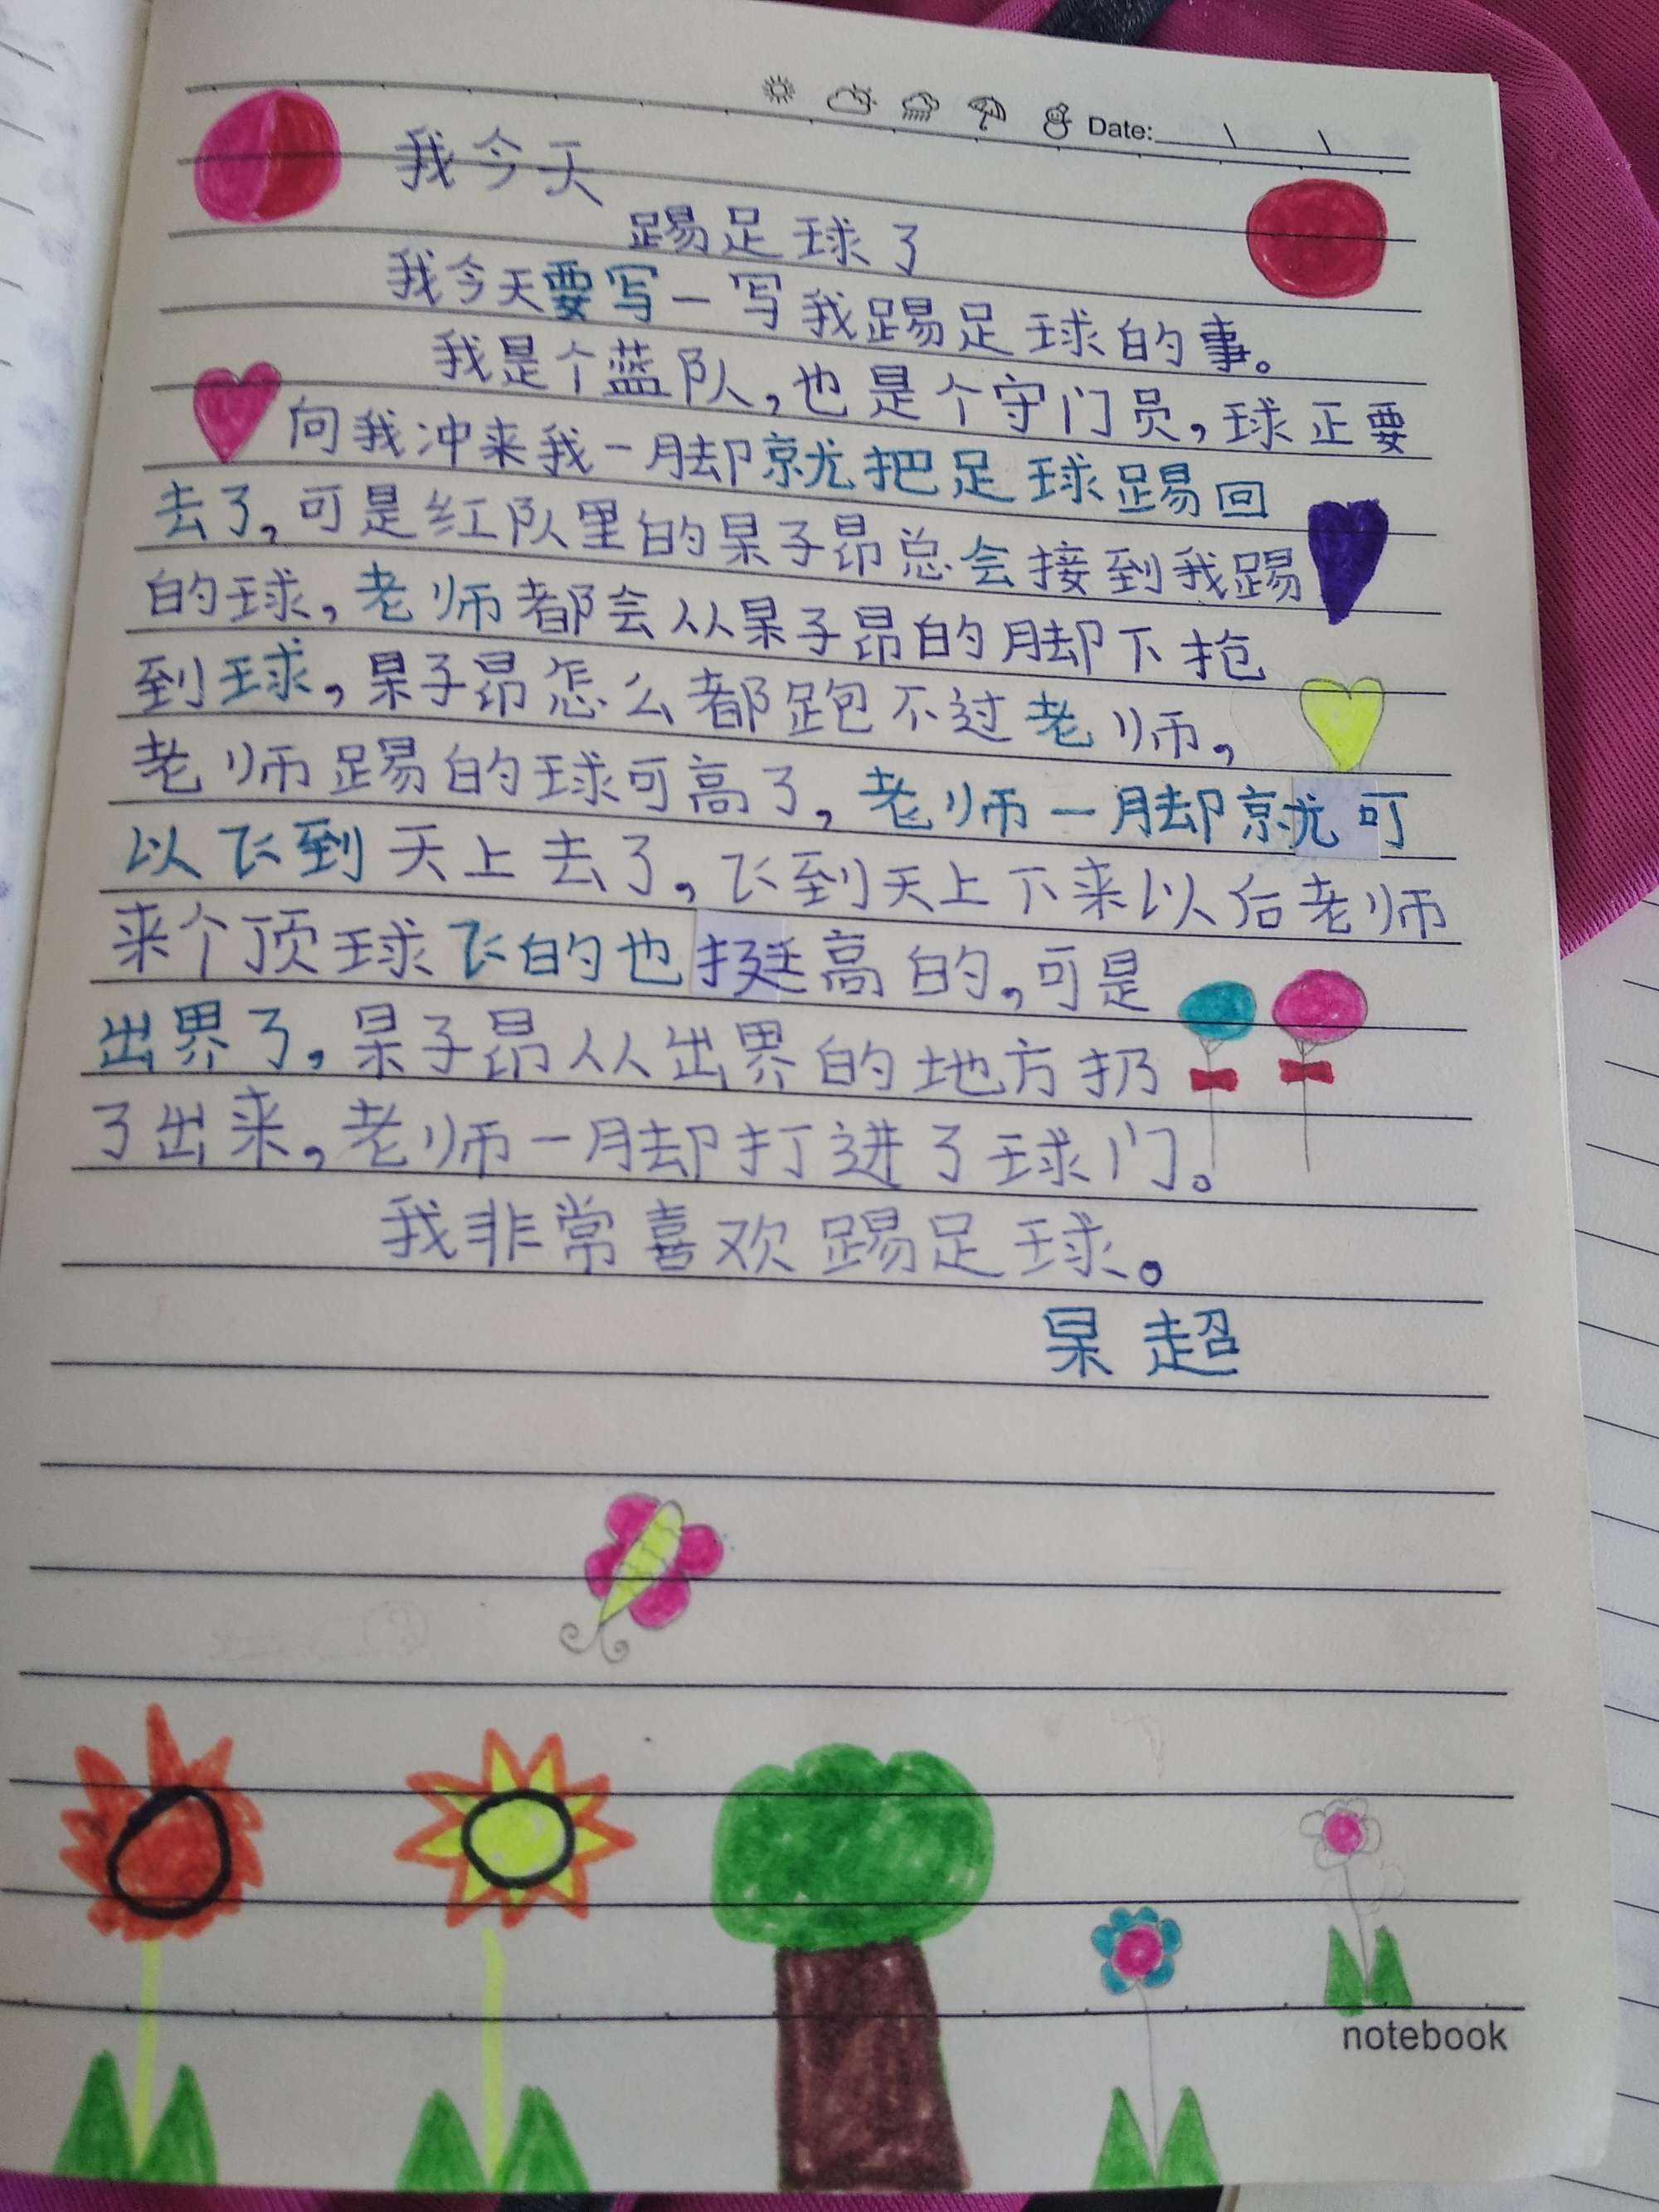 Date:
我今天
踢足球了
我今天要写一写我踢足球的事。
我是个蓝队,也是个守门员,球正要
向我冲来我一脚就把足球踢回
去了,可是红队里的杲子昂总会接到我踢
的球,老师都会从杲子昂的脚下抢
到球,杲子昂怎么都跑不过老师,
老师踢的球可高了,老师一脚就可
以飞到天上去了,飞到天上下来以后老师
来个顶球飞的也挺高的,可是
出界了,杲子昂从出界的地方扔
了出来,老师一脚打进了球门。
我非常喜欢踢足球。
杲超
notebook